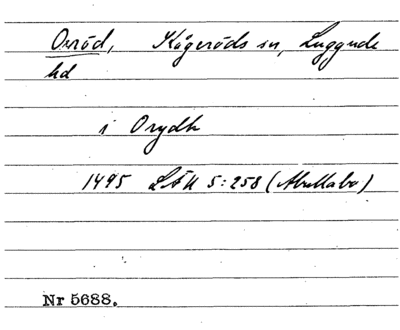 Oeröd, Kågeröds sn, Luggude
hd
i Orydh
1495 LÄU 5:258 (Abullabo)
Nr 5688.